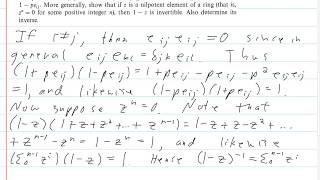 1 − pe_ij. More generally, show that if z is a nilpotent element of a ring (that is,
z^n = 0 for some positive integer n), then 1 − z is invertible. Also determine its
inverse.
If i≠j, then e_ij e_ij = 0 since in
general e_ij e_kl = δ_jk e_il. Thus
(1+pe_ij)(1-pe_ij) = 1+pe_ij-pe_ij-p²e_ij e_ij
= 1, and likewise (1-pe_ij)(1+pe_ij) = 1.
Now suppose z^n = 0. Note that
(1-z)(1+z+z²+...+z^{n-1}) = 1-z+z-z²+...
+z^{n-1}-z^n = 1-z^n = 1, and likewise
(Σ_0^{n-1} z^i)(1-z) = 1. Hence (1-z)^{-1} = Σ_0^{n-1} z^i